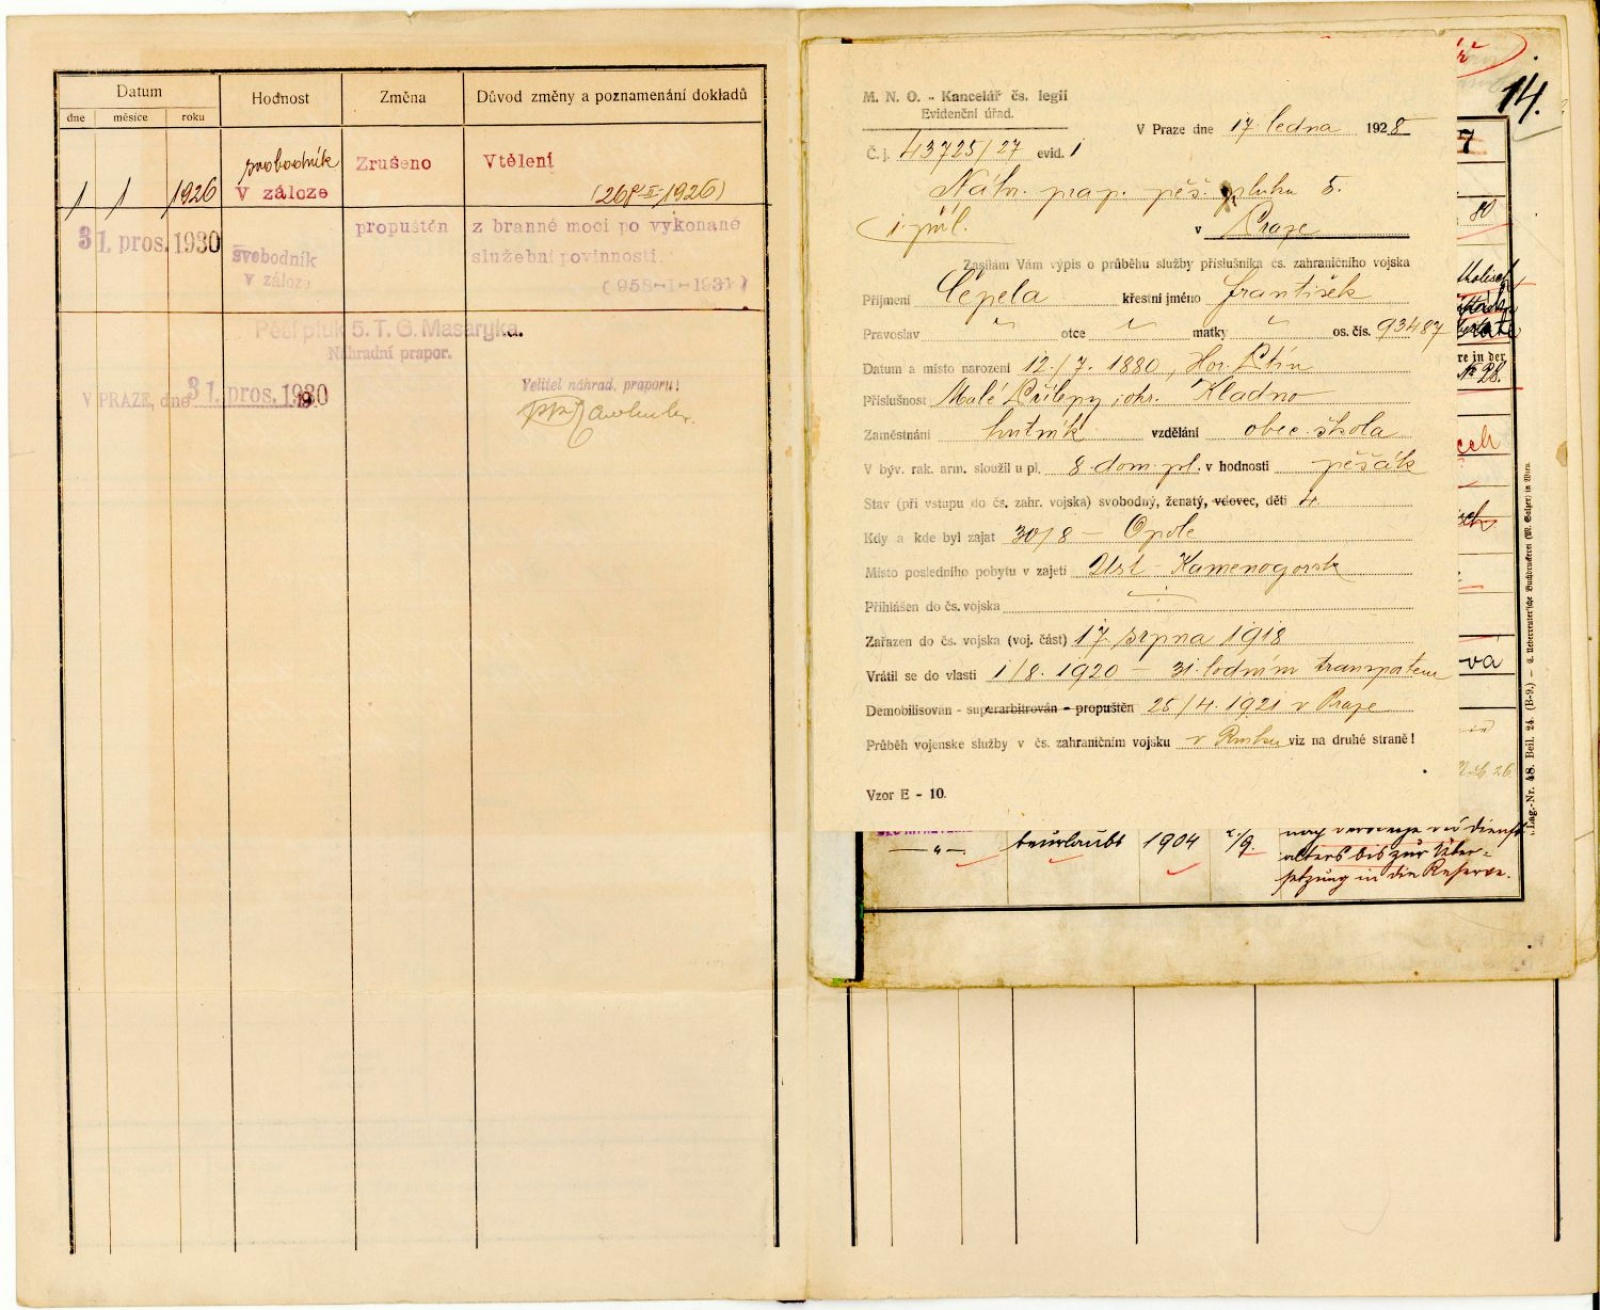 Datum Hodnost Změna Důvod změny a poznamenání dokladů
dne měsíce roku
svobodník Zrušeno Vtělení
1 1 1926 v záloze (268-II-1926)
31. pros. 1930 svobodník v záloze propuštěn z branné moci po vykonané
služební povinnosti.
(958-I-1931)
Pěší pluk 5. T. G. Masaryka.
Náhradní prapor.
V PRAZE, dne 31. pros. 1930
Velitel náhrad. praporu:
14.
M. N. O. - Kancelář čs. legií
Evidenční úřad.
V Praze dne 17. ledna 1928
Č. j. 43725/27 evid. 1
Náhr. prap. pěš. pluku 5.
v Praze
Zasílám Vám výpis o průběhu služby příslušníka čs. zahraničního vojska
Příjmení Čepela křestní jméno František
Pravoslav otce matky os. čís. 93487
Datum a místo narození 12./7. 1880, Hor. Ptín
Příslušnost Malé Přílepy, okr. Kladno
Zaměstnání hutník vzdělání obec. škola
V býv. rak. arm. sloužil u pl. 8. dom. pl. v hodnosti pěšák
Stav (při vstupu do čs. zahr. vojska) svobodný, ženatý, vdovec, dětí 4.
Kdy a kde byl zajat 30/8 - Opole
Místo posledního pobytu v zajetí Ust - Kamenogorsk
Přihlášen do čs. vojska
Zařazen do čs. vojska (voj. část) 17. srpna 1918
Vrátil se do vlasti 1/8. 1920 - 31. lodním transportem
Demobilisován - superarbitrován - propuštěn 25/4. 1921 v Praze
Průběh vojenske služby v čs. zahraničním vojsku v Rusku viz na druhé straně!
Vzor E - 10.
7
80
re in der
No 28.
vá
Lag.-Nr. 48. Beil. 24. (B-9.)
- " - beurlaubt 1904 1/9.
alters bis zur Über-
setzung in die Reserve.